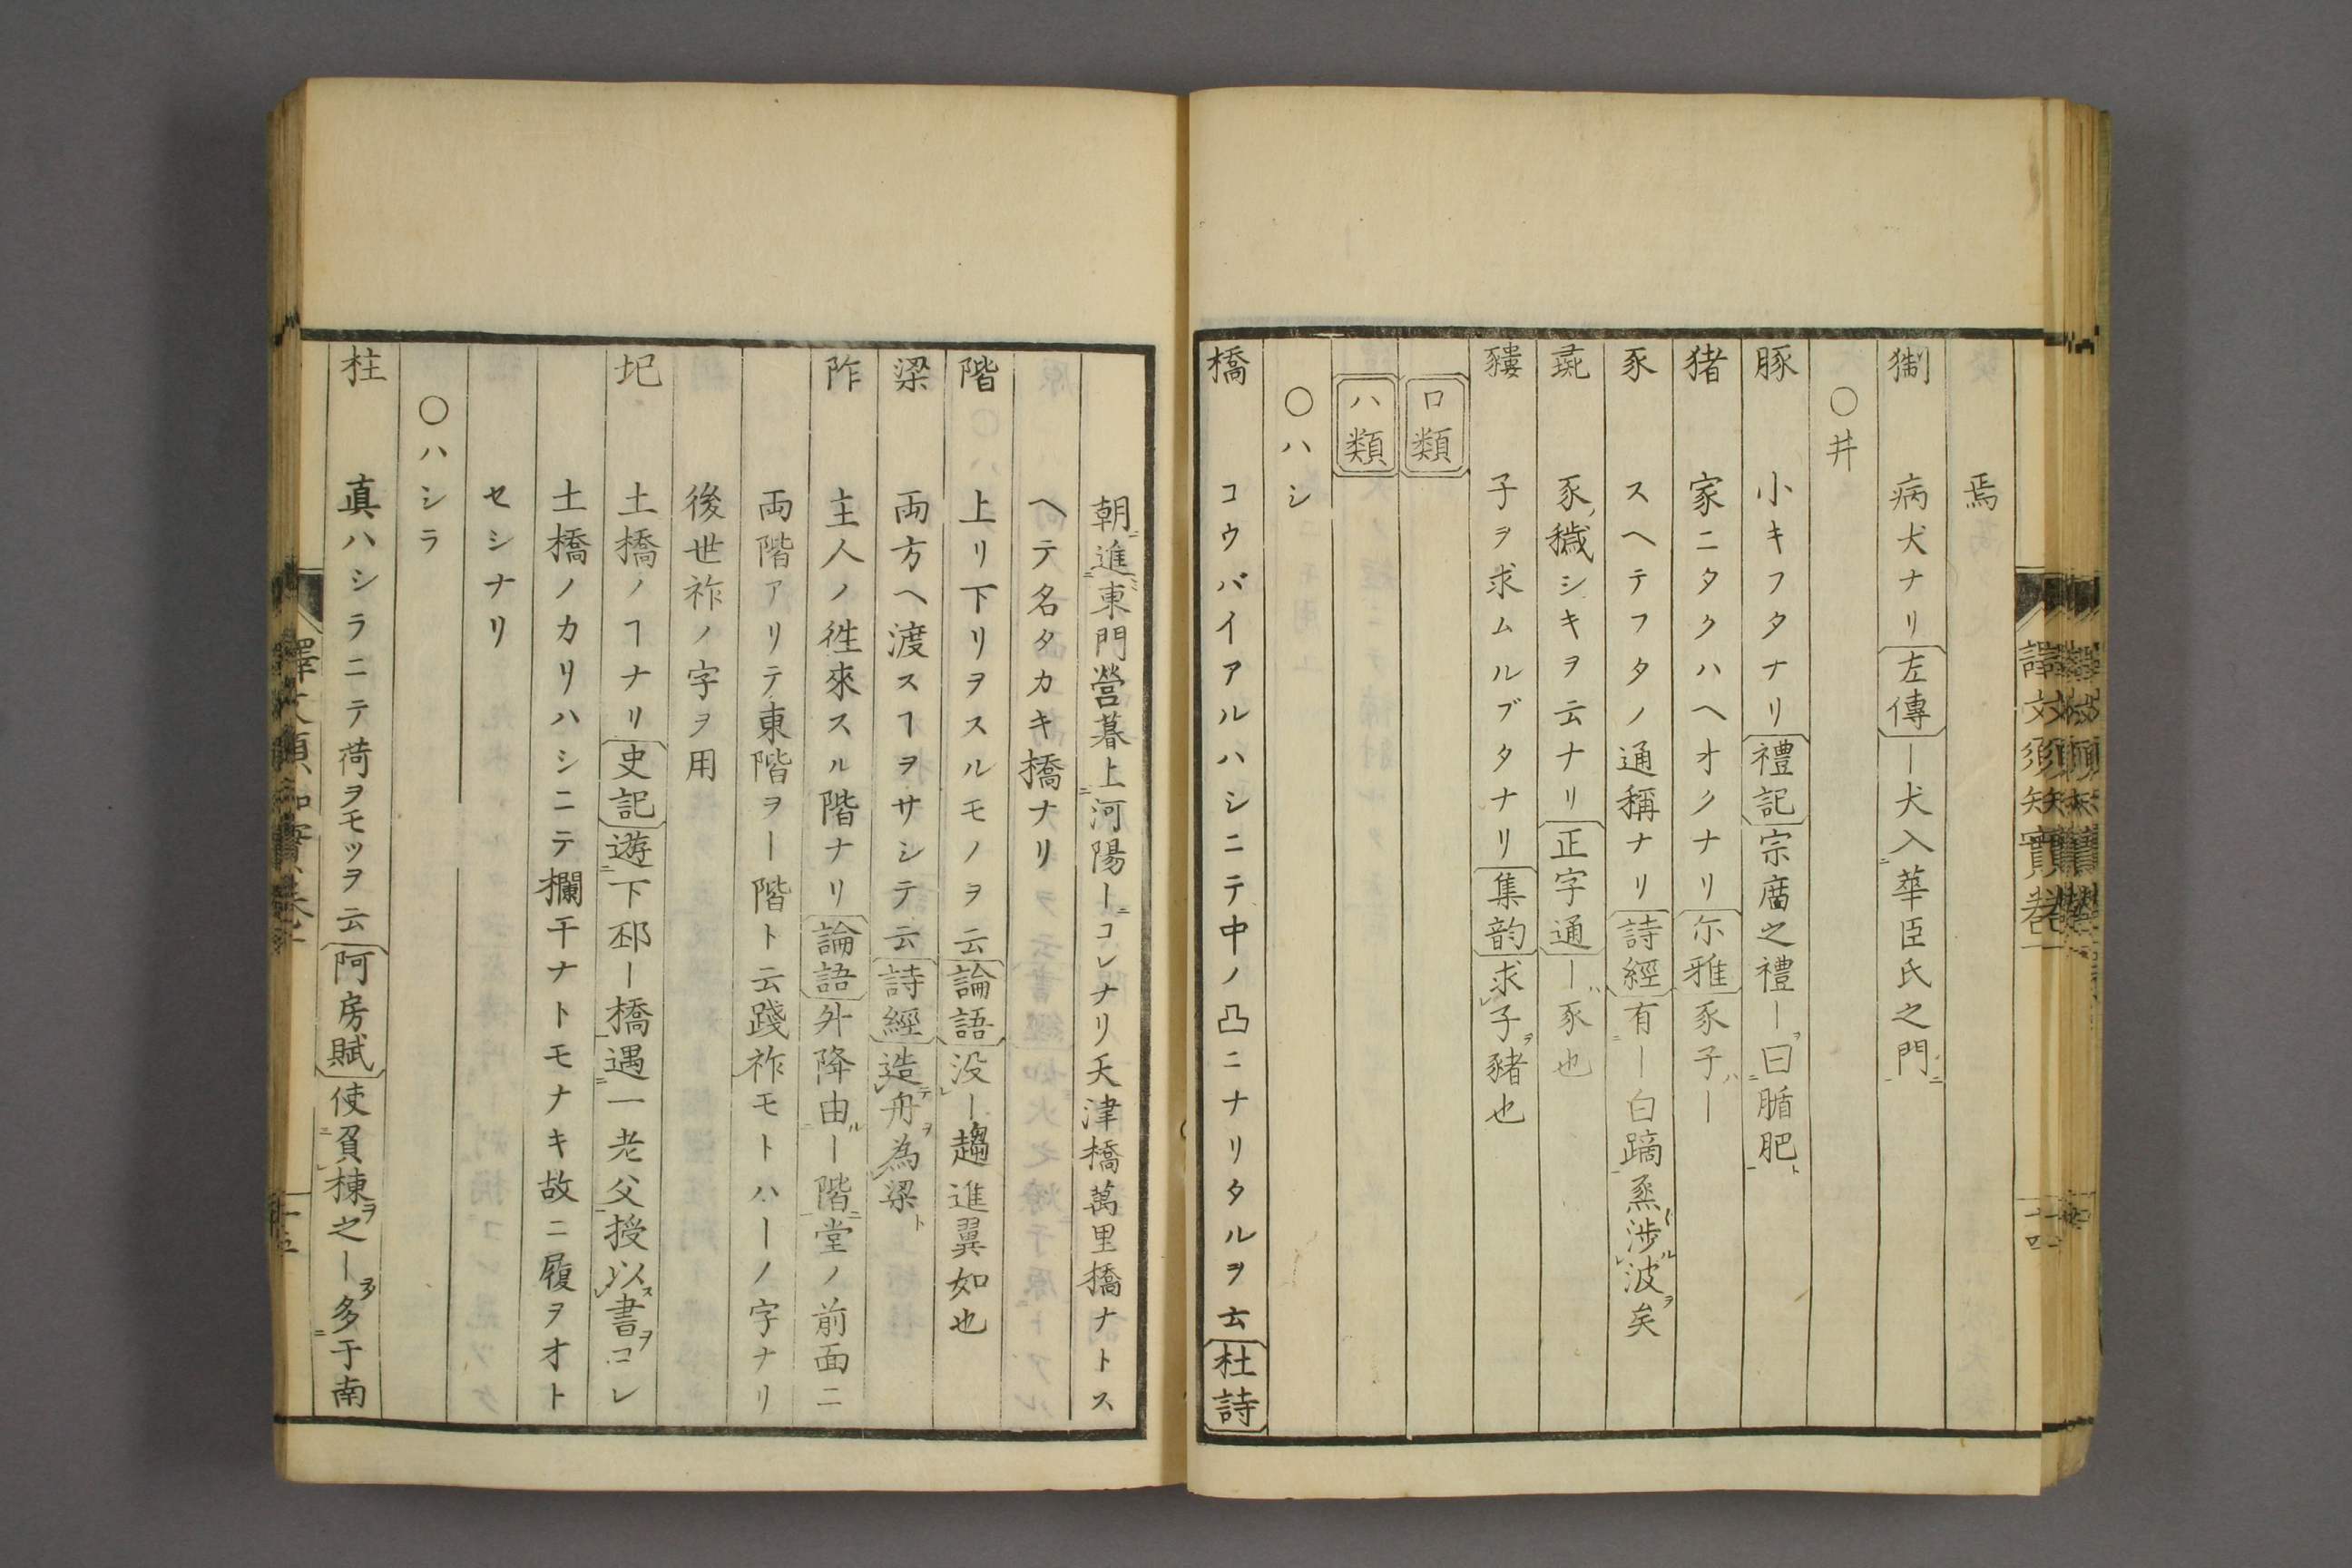 焉
猘 病犬ナリ左傳ー犬入華臣氏之門
〇井
豚 小キフタナリ禮記宗廟之禮ー曰腯肥
猪 家ニタクハヘオクナリ尓雅豕子ー
豕 スヘテフタノ通稱ナリ詩經有ー白蹢烝涉波矣
豕穢シキヲ云ナリ正字通ー豕也
子ヲ求ムルブタナリ集韵求子豬也
ロ類
ハ類
〇ハシ
橋 コウバイアルハシニテ中ノ凸ニナリタルヲ云杜詩
譯文須知實卷一 十四
朝進東門營暮上河陽ーコレナリ天津橋萬里橋ナトス
ヘテ名タカキ橋ナリ
階 上リ下リヲスルモノヲ云論語没ー趨進翼如也
梁 両方ヘ渡スヿヲサシテ云詩經造舟為梁
阼 主人ノ徃來スル階ナリ論語外降由ー階堂ノ前面ニ
両階アリテ東階ヲー階ト云踐祚モトハーノ字ナリ
後世祚ノ字ヲ用
圯 土橋ノヿナリ史記遊下邳ー橋遇一老父授以書コレ
土橋ノカリハシニテ欄干ナトモナキ故ニ履ヲオト
セシナリ
〇ハシラ
柱 真ハシラニテ荷ヲモツヲ云阿房賦使負棟之ー多于南